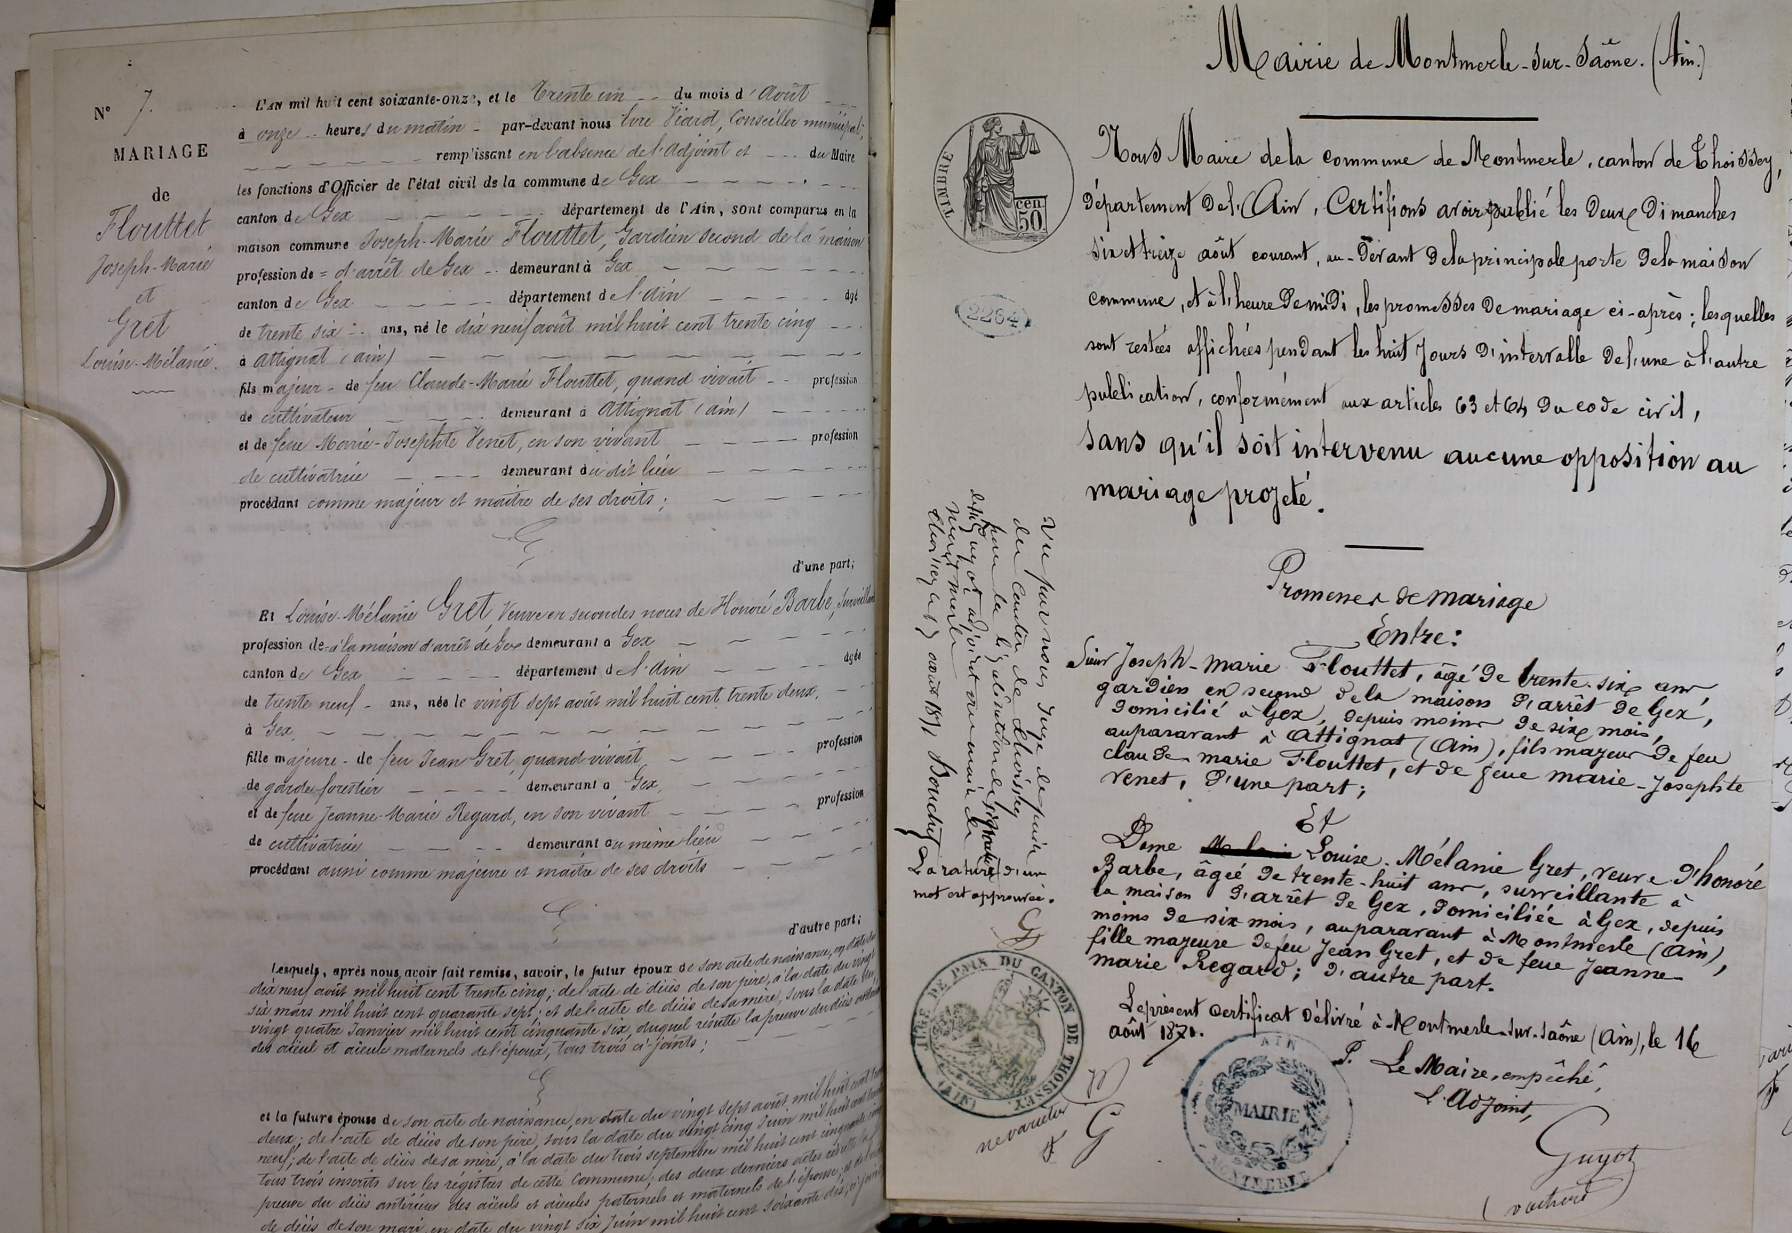 N° 7.
MARIAGE
de
Flouttet
Joseph-Marie
et
Gret
Louise-Mélanie.
L'an mil huit cent soixante-onze, et le Trente un du mois d'Août
à onze heures du matin par-devant nous Viard, Conseiller municipal;
remplissant en l'absence de l'adjoint et du Maire
les fonctions d'Officier de l'état civil de la commune de Gex
canton de Gex département de l'Ain, sont comparus en la
maison commune Joseph-Marie Flouttet, Gardien second de la maison
profession de = d'arrêt de Gex demeurant à Gex
canton de Gex département de l'Ain âgé
de trente six ans, né le dix neuf août mil huit cent trente cinq
à Attignat (ain)
fils majeur de feu Claude-Marie Flouttet, quand vivait profession
de cultivateur demeurant à Attignat (ain)
et de feue Marie-Josephte Venet, en son vivant profession
de cultivatrice demeurant au dit lieu
procédant comme majeur et maître de ses droits;
d'une part;
Et Louise-Mélanie Gret, Veuve en secondes noces de Honoré Barbe, Surveillante
profession de à la maison d'arrêt de Gex demeurant à Gex
canton de Gex département de l'Ain âgée
de trente neuf ans, née le vingt sept août mil huit cent trente deux,
à Gex
fille majeure de feu Jean Gret, quand vivait profession
de garde-forestier demeurant à Gex,
et de feue Jeanne-Marie Regard, en son vivant profession
de cultivatrice demeurant au même lieu
procédant aussi comme majeure et maître de ses droits
d'autre part;
Lesquels, après nous avoir fait remise, savoir, le futur époux de son acte de naissance, en date du
dix neuf août mil huit cent trente cinq; de l'acte de décès de son père, à la date du vingt
six mars mil huit cent quarante sept; et de l'acte de décès de sa mère, sous la date du
vingt quatre Janvier mil huit cent cinquante six, duquel résulte la preuve du décès
des aïeul et aïeule maternels de l'époux, tous trois ci-joints;
et la future épouse de son acte de naissance, en date du vingt sept août mil huit cent trente
deux; de l'acte de décès de son père, sous la date du vingt cinq Juin mil huit cent
neuf; de l'acte de décès de sa mère, à la date du trois septembre mil huit cent cinquante
tous trois inscrits sur les régistres de cette Commune; des deux derniers actes résulte la
preuve du décès antérieur des aïeuls et aïeules paternels et maternels de l'épouse; et de l'acte
de décès de son mari en date du vingt six Juin mil huit cent soixante dix, ci-joint
Mairie de Montmerle-sur-Saône. (Ain.)
TIMBRE
cen
50
2264
Nous Maire de la commune de Montmerle, canton de Thoissey,
département de l'Ain, Certifions avoir publié les deux dimanches
six et treize août courant, au-devant de la principale porte de la maison
commune, et à l'heure de midi, les promesses de mariage ci-après; lesquelles
sont restées affichées pendant les huit jours d'intervalle de l'une à l'autre
publication, conformément aux articles 63 et 64 du code civil,
sans qu'il soit intervenu aucune opposition au
mariage projeté.
Promesses de mariage
Entre:
Sieur Joseph-Marie Flouttet, âgé de trente-six ans
gardien en second de la maison d'arrêt de Gex,
domicilié à Gex, depuis moins de six mois,
auparavant à Attignat (Ain), fils mageur de feu
claude marie Flouttet, et de feue marie-Josephte
Venet, d'une part;
Et
Dame Louise-Mélanie Gret, veuve d'honoré
Barbe, âgée de trente-huit ans, surveillante à
la maison d'arrêt de Gex, domiciliée à Gex, depuis
moins de six mois, auparavant à Montmerle (Ain),
fille mageure de feu Jean Gret, et de feue Jeanne-
marie Regard; d'autre part.
Le présent certificat délivré à Montmerle-sur-Saône (Ain), le 16
août 1871.
P. Le Maire, empêché,
L'Adjoint,
Guyot
Vu par nous Juge de paix
du Canton de Thoissey
pour la légalisation de la signature
de Mr Guyot adjoint au maire de
Montmerle
Thoissey le 17 août 1871
La rature d'un
mot est approuvée.
G
JUSTICE DE PAIX DU CANTON DE THOISSEY (AIN)
ne varietur
G
AIN
MAIRIE
MONTMERLE